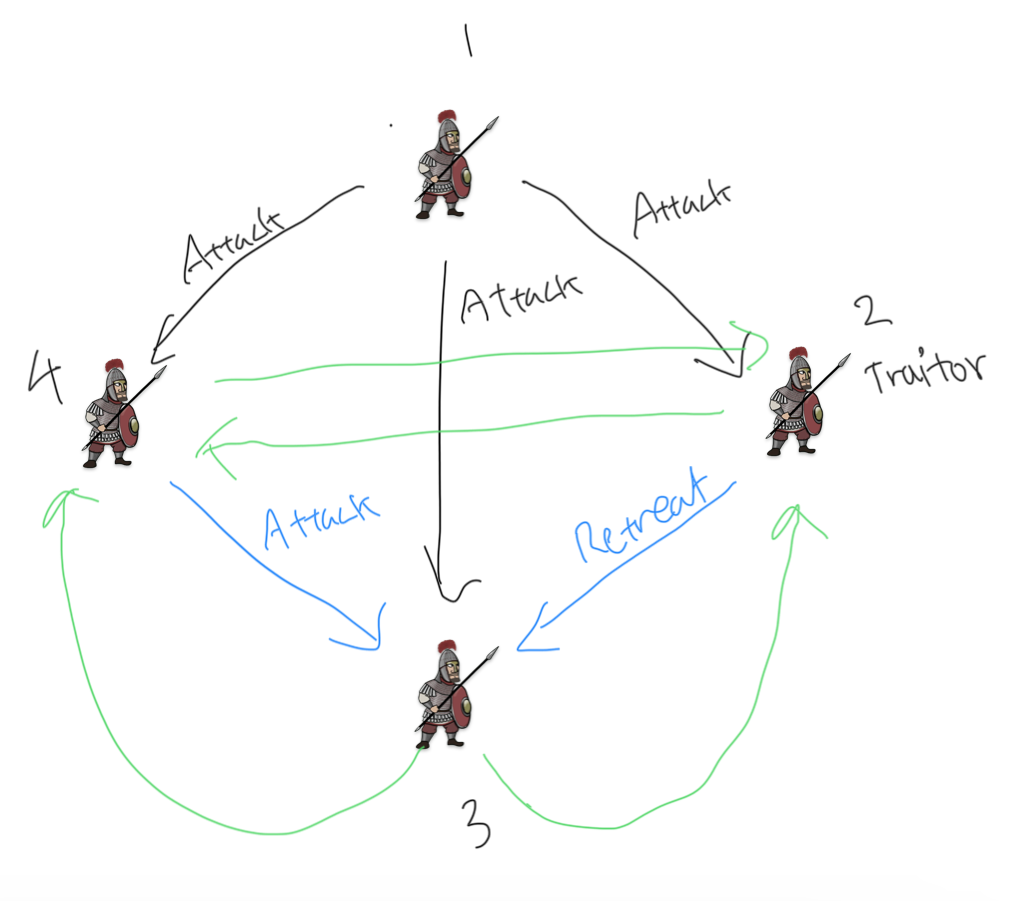 1
Attack
Attack
Attack
2
Traitor
4
Attack
Retreat
3